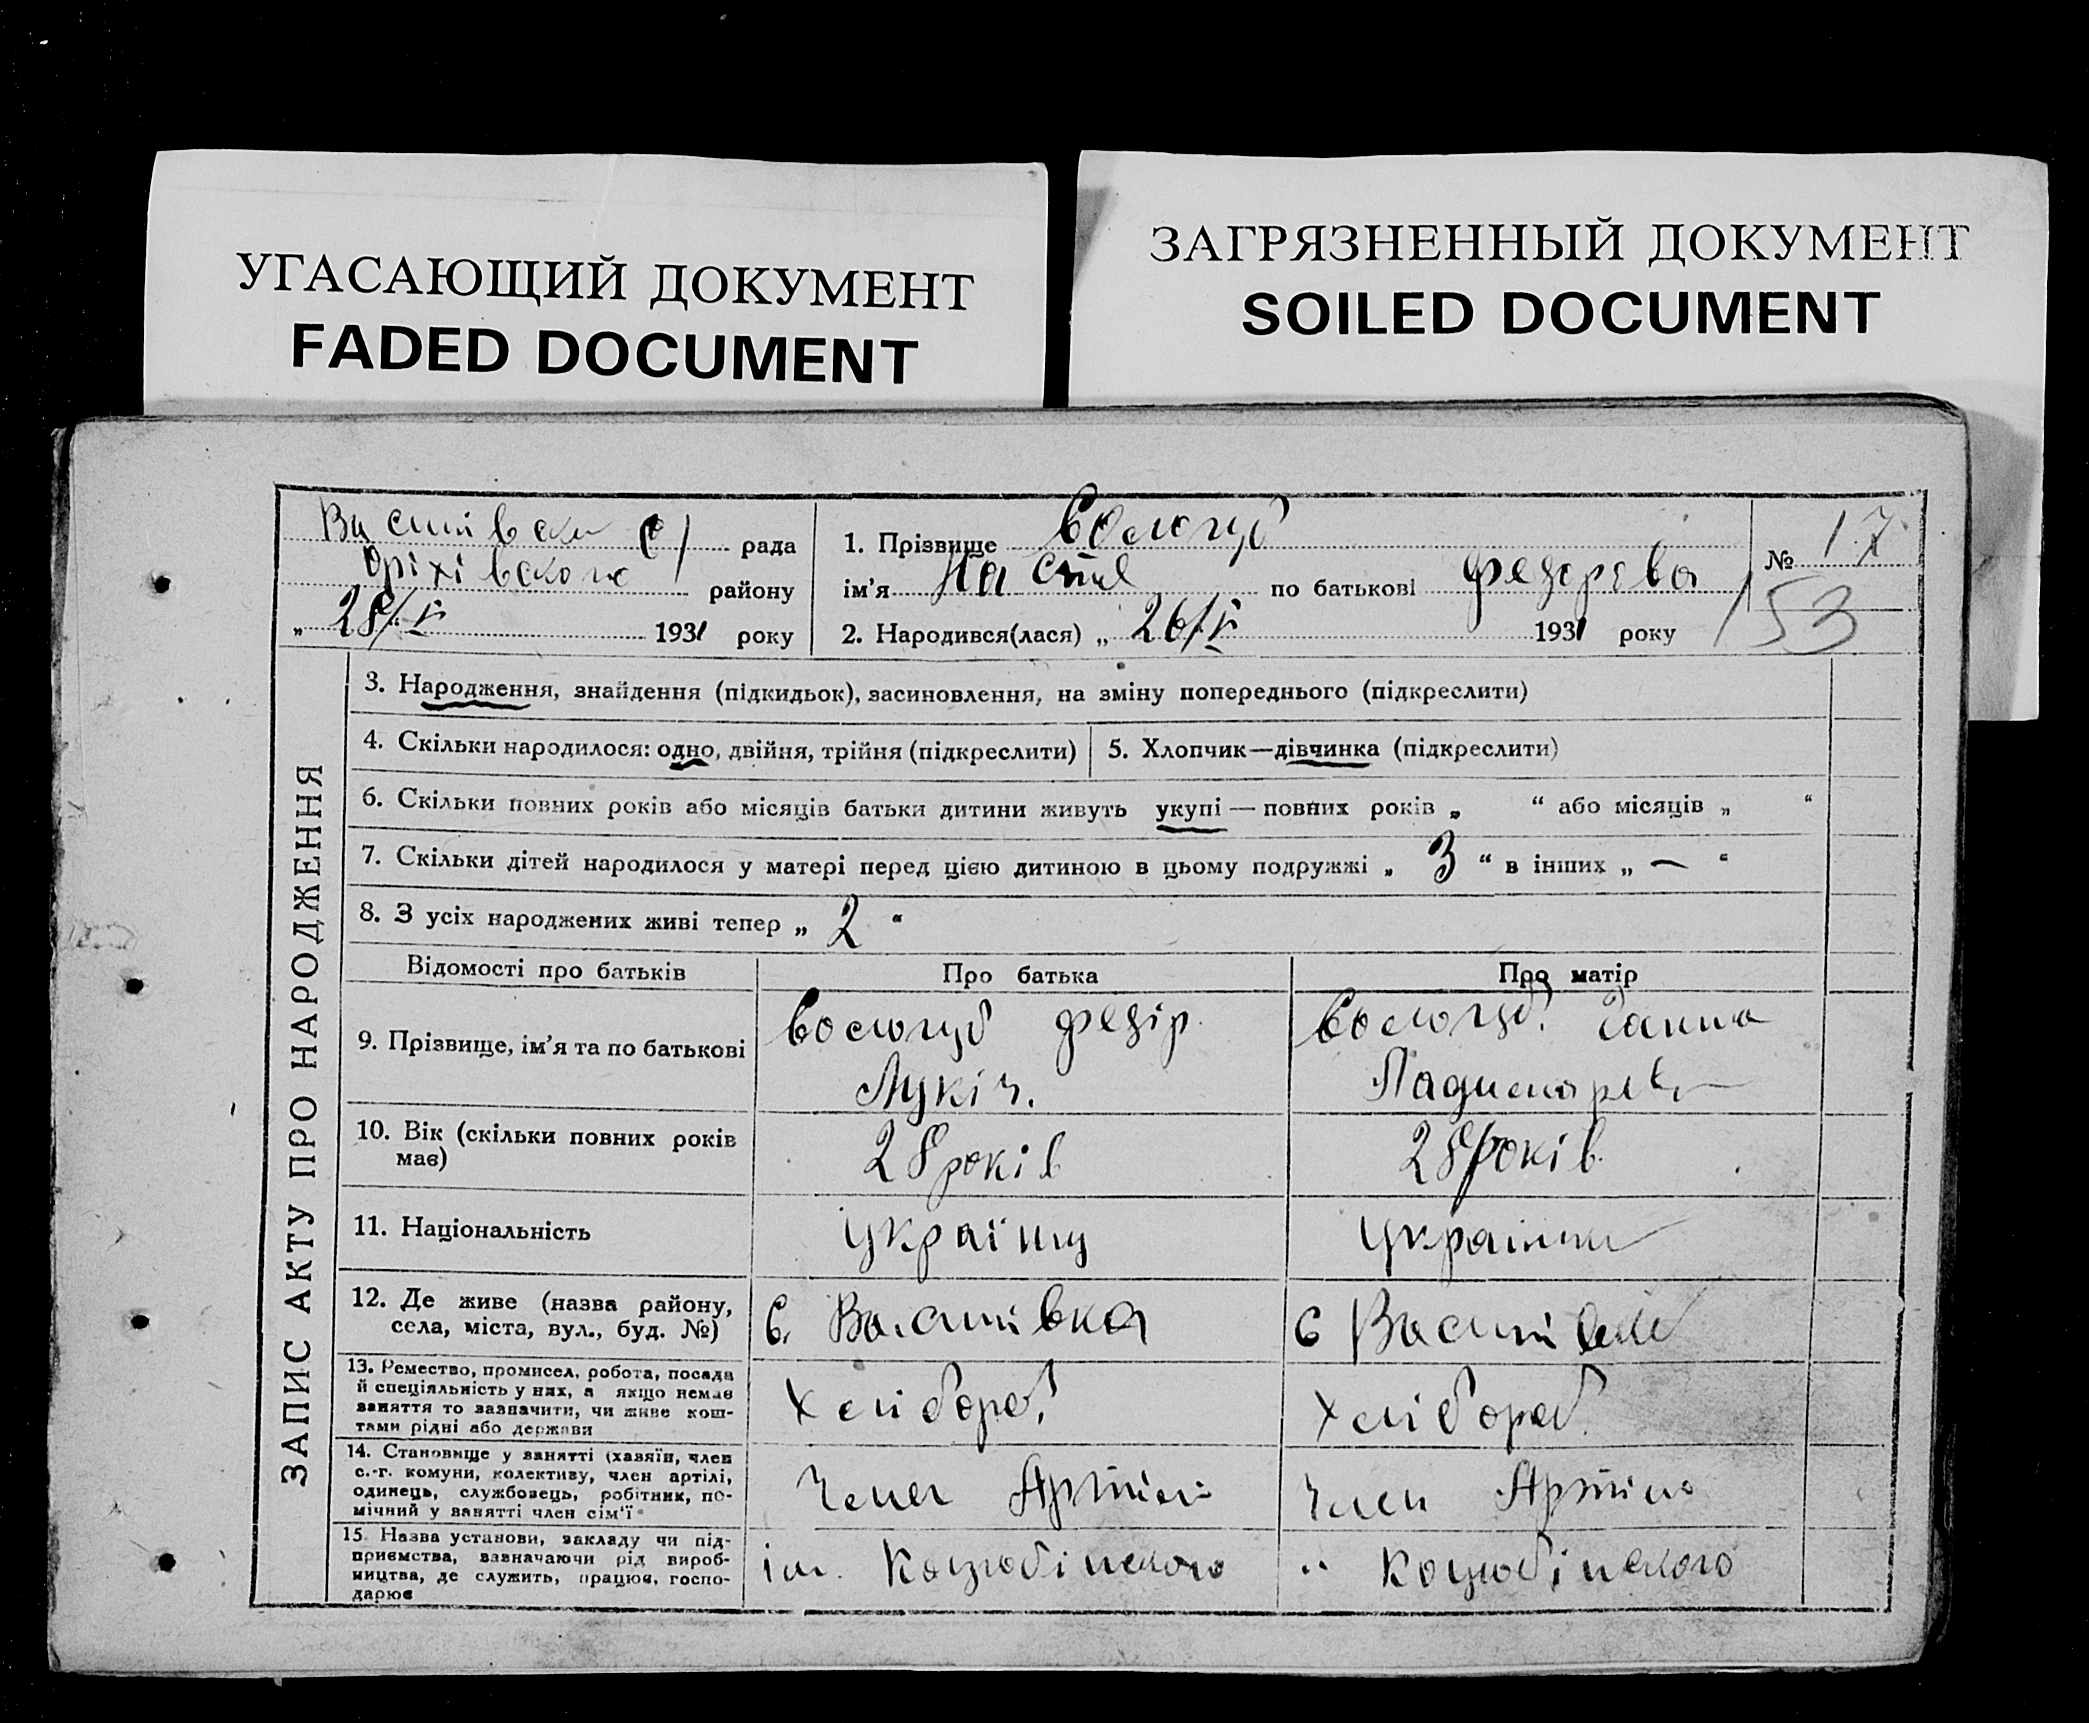 УГАСАЮЩИЙ ДОКУМЕНТ
FADED DOCUMENT
ЗАГРЯЗНЕННЫЙ ДОКУМЕНТ
SOILED DOCUMENT
рада
Оріхівського району
„28/V 1931 року
1. Прізвище Вологуб
ім'я Настя по батькові Федорова
2. Народився(лася) „26/V 1931 року
№ 17
53
ЗАПИС АКТУ ПРО НАРОДЖЕННЯ
3. Народження, знайдення (підкидьок), засиновлення, на зміну попереднього (підкреслити)
4. Скільки народилося: одно, двійня, трійня (підкреслити)
5. Хлопчик—дівчинка (підкреслити)
6. Скільки повних років або місяців батьки дитини живуть укупі — повних років „ “ або місяців „ “
7. Скільки дітей народилося у матері перед цією дитиною в цьому подружжі „ 3 “ в інших „ — “
8. З усіх народжених живі тепер „ 2 “
Відомості про батьків
Про батька
Про матір
9. Прізвище, ім'я та по батькові
Вологуб Федір
Лукіч.
Вологуб Ганна
10. Вік (скільки повних років
має)
28 років
28 років
11. Національність
українц
українка
12. Де живе (назва району,
села, міста, вул., буд. №)
с. Василівка
с Василівка
13. Ремество, промисел, робота, посада
й спеціяльність у них, а якщо немає
заняття то зазначити, чи живе кош-
тами рідні або держави
Хлібороб
Хлібороб
14. Становище у занятті (хазяїн, член
с.-г. комуни, колективу, член артілі,
одинець, службовець, робітник, по-
мічний у занятті член сім'ї
Член Артілі
Член Артілі
15. Назва установи, закладу чи під-
приємства, зазначаючи рід вироб-
ництва, де служить, працює, госпо-
дарює
ім. Коцюбінського
“ Коцюбінського